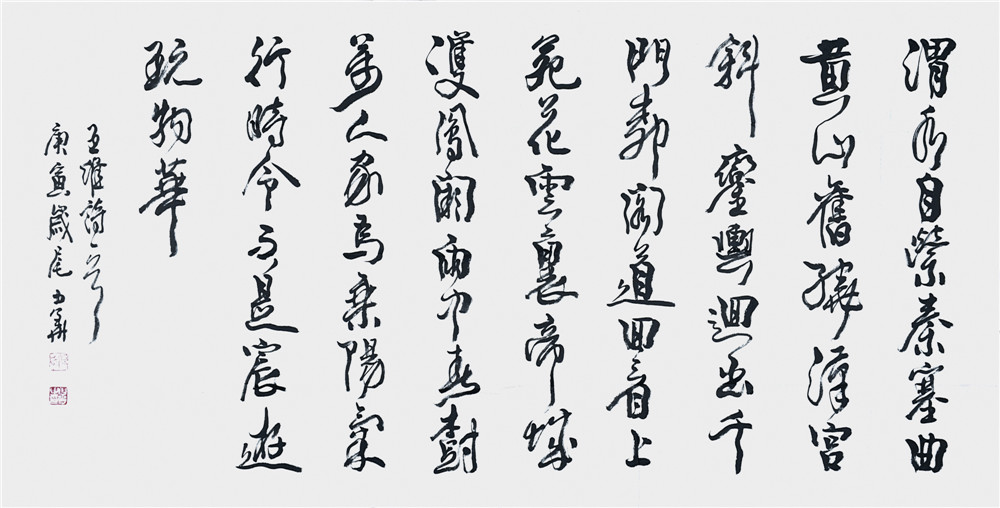 渭水自縈秦塞曲
黃山舊繞漢宮
斜鑾輿迴出千
門柳閣道回看上
苑花雲裏帝城
雙鳳闕雨中春樹
萬人家為乘陽氣
行時令不是宸遊
玩物華
王維詩一首
庚寅歲尾